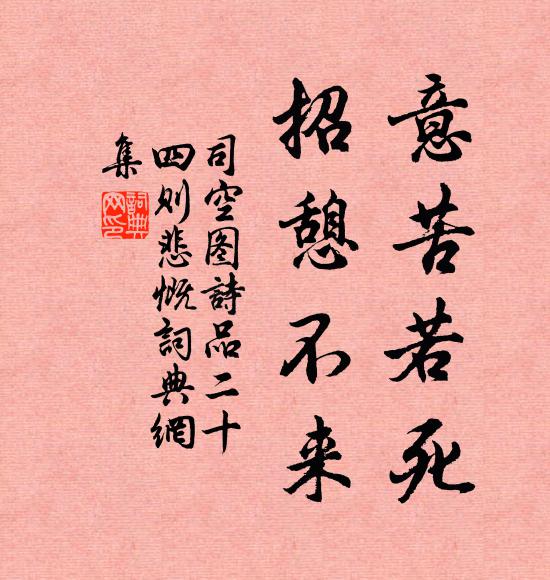 意苦若死
招憩不来
司空图詩品二十
四则悲慨詞典網
集
詞典
网印